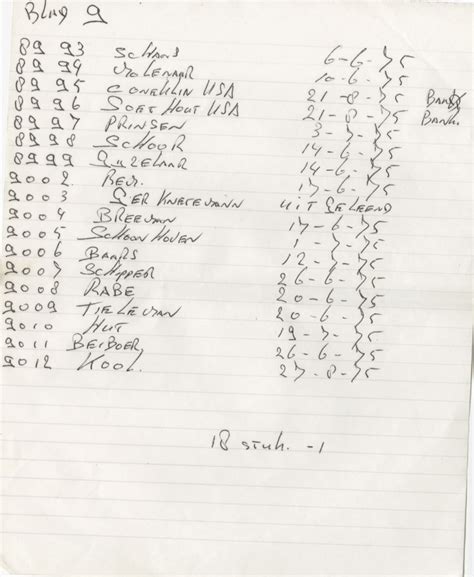 Blad 9
8993 Schans 6-6-75
8994 Molenaar 10-6-75
8995 Conehlin USA 21-8-75 Bank
8996 Soft Hout USA 21-8-75 Bank.
8997 Prinsen 3-7-75
8998 Schoor 14-6-75
8999 14-6-75
9002 17-6-75
9003 Ger uit geleend
9004 Breeman 17-6-75
9005 Schoonhoven 1-7-75
9006 Baars 12-7-75
9007 Schipper 26-6-75
9008 Rabe 20-6-75
9009 Tieleman 20-6-75
9010 Hut 19-7-75
9011 Beiboer 26-6-75
9012 Kool. 27-8-75
18 stuk. -1